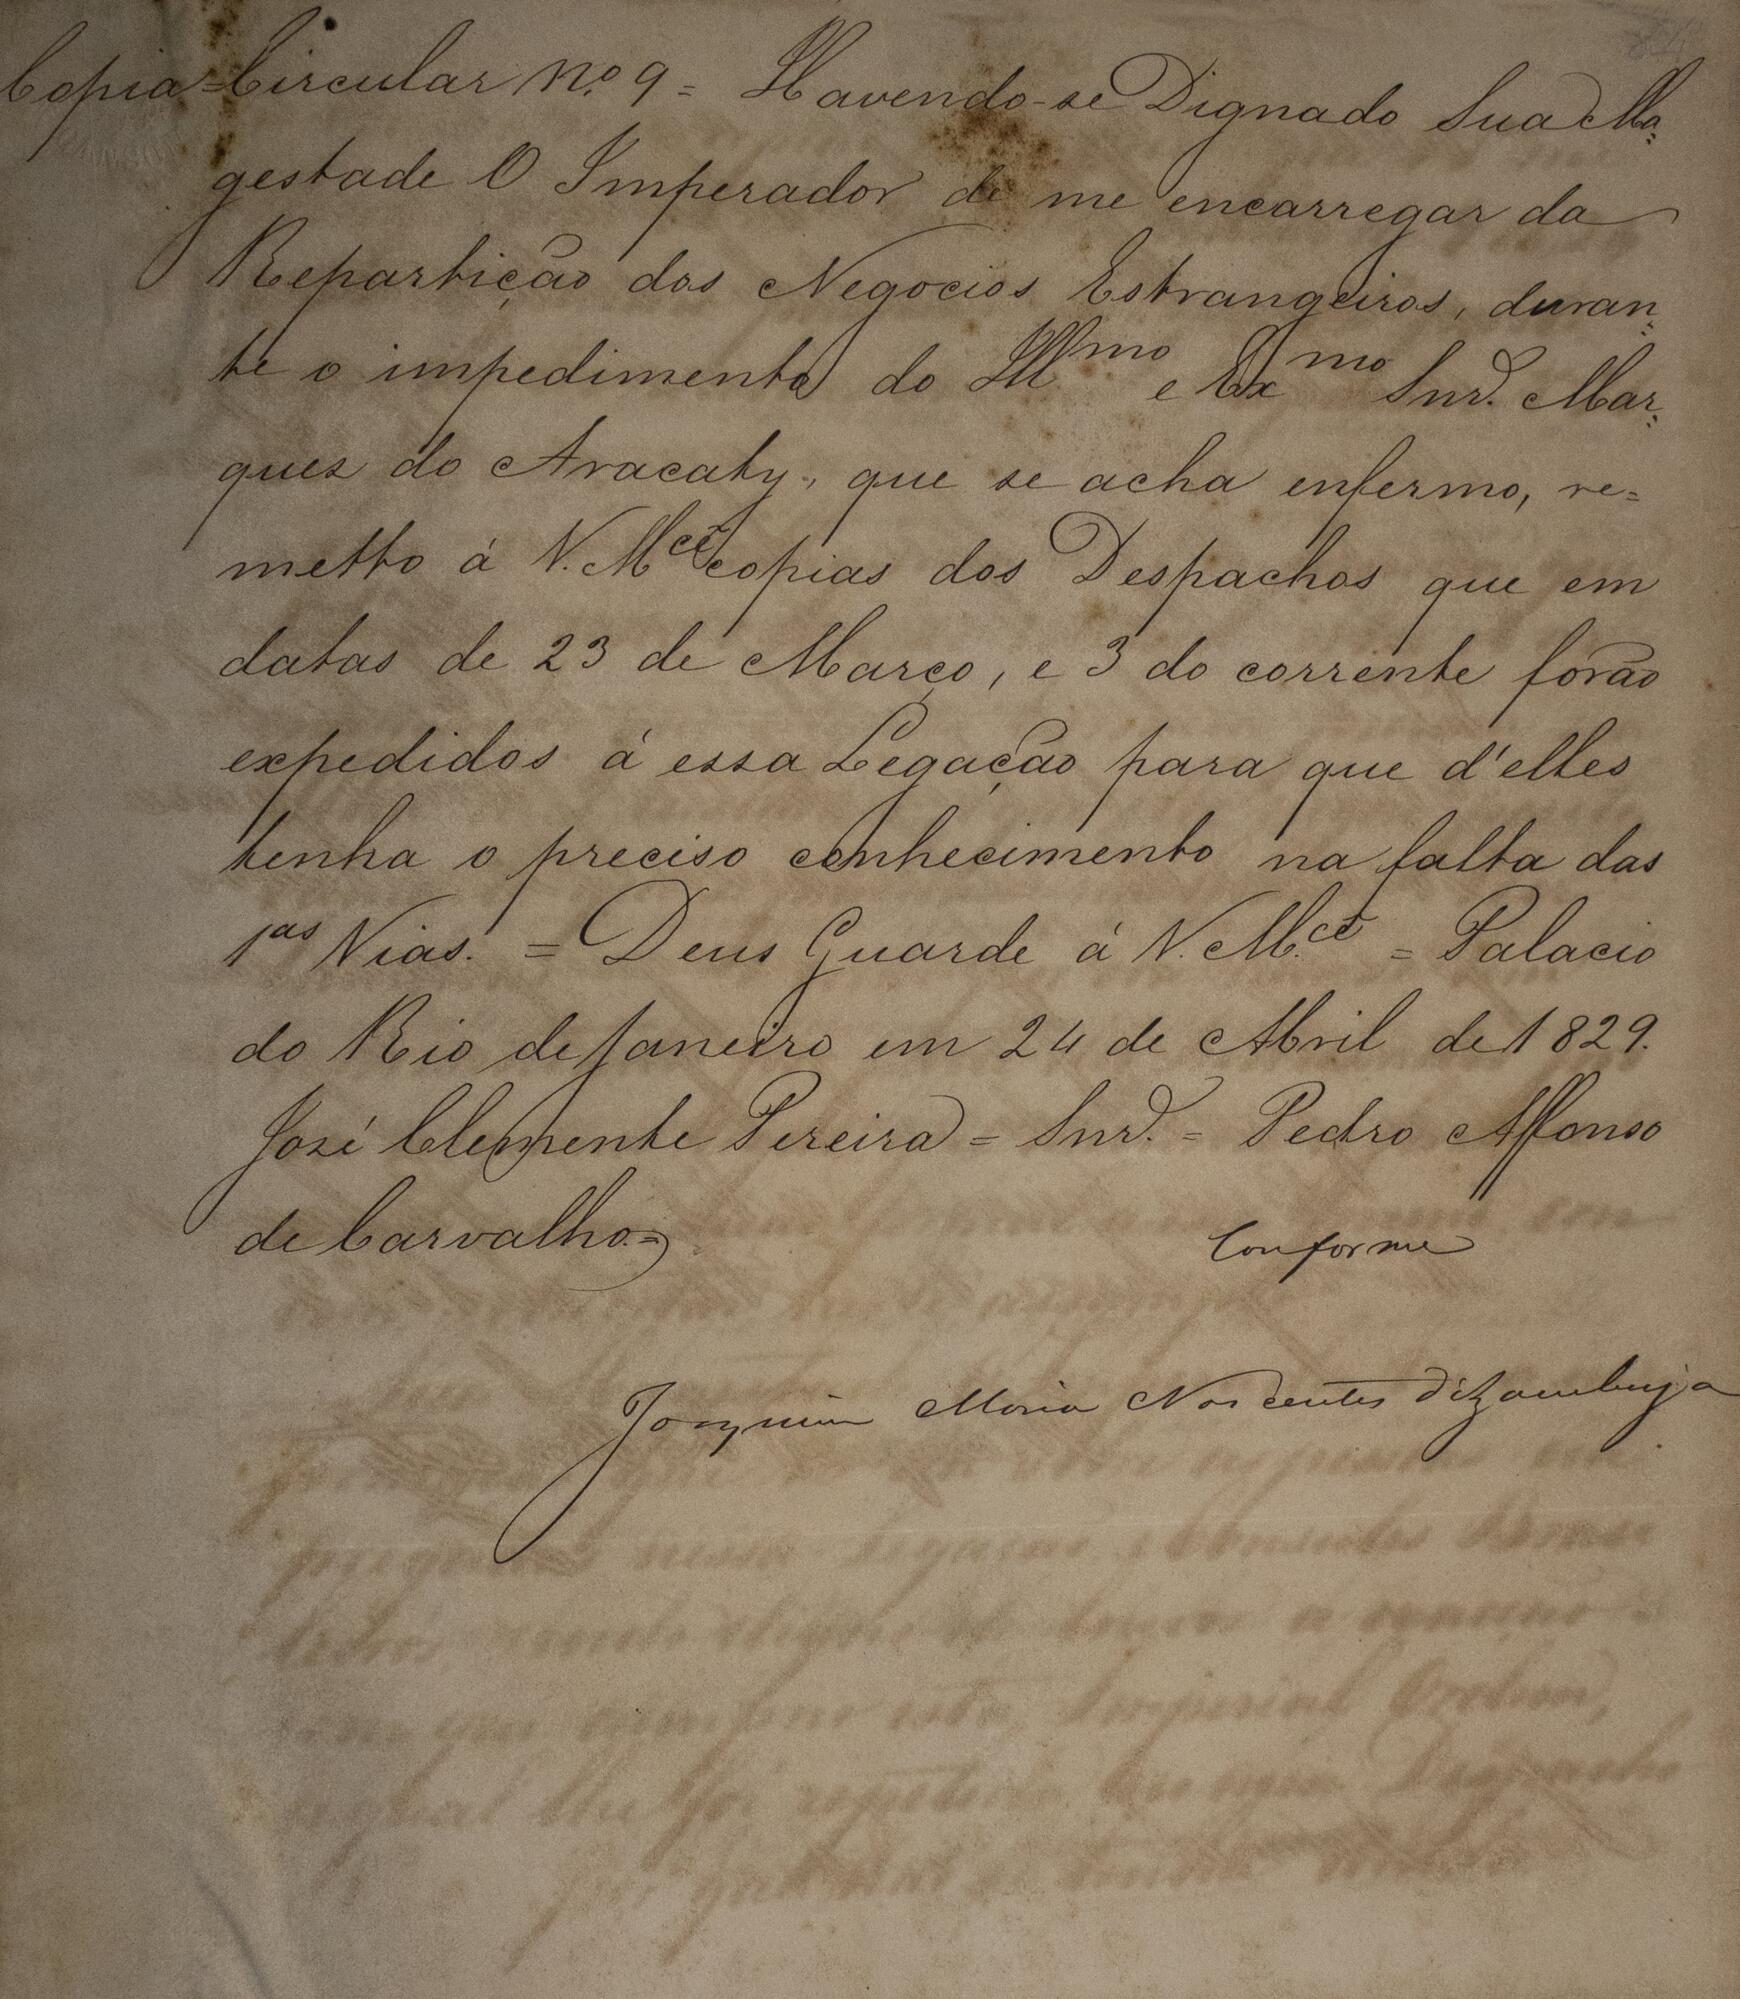 Copia = Circular Nº. 9 = Havendo-se Dignado Sua Ma=
gestade O Imperador de me encarregar da
Repartição dos Negocios Estrangeiros, duran=
te o impedimento do Illmo e Exmo Snr. Mar=
quez do Aracaty, que se acha enfermo, re=
metto á V. Mcê copias dos Despachos que em
datas de 23 de Março, e 3 do corrente forão
expedidos á essa Legação para que d'elles
tenha o preciso conhecimento na falta das
1as Vias. = Deus Guarde á V. M.cê = Palacio
do Rio de Janeiro em 24 de Abril de 1829.
José Clemente Pereira = Snr. = Pedro Affonso
de Carvalho =
Conforme
Joaquim Maria Nascentes d'Azambuja